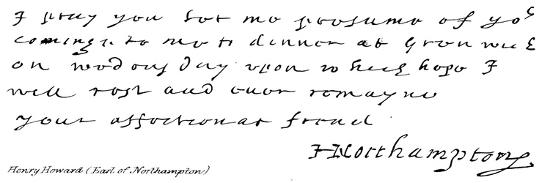 I pray you let me presume of yor
coming to me to dinner at Grenwich
on wednesday vpon which hope I
will rest and euer remayne
your affectionat frend
HNorthampton
Henry Howard (Earl of Northampton)